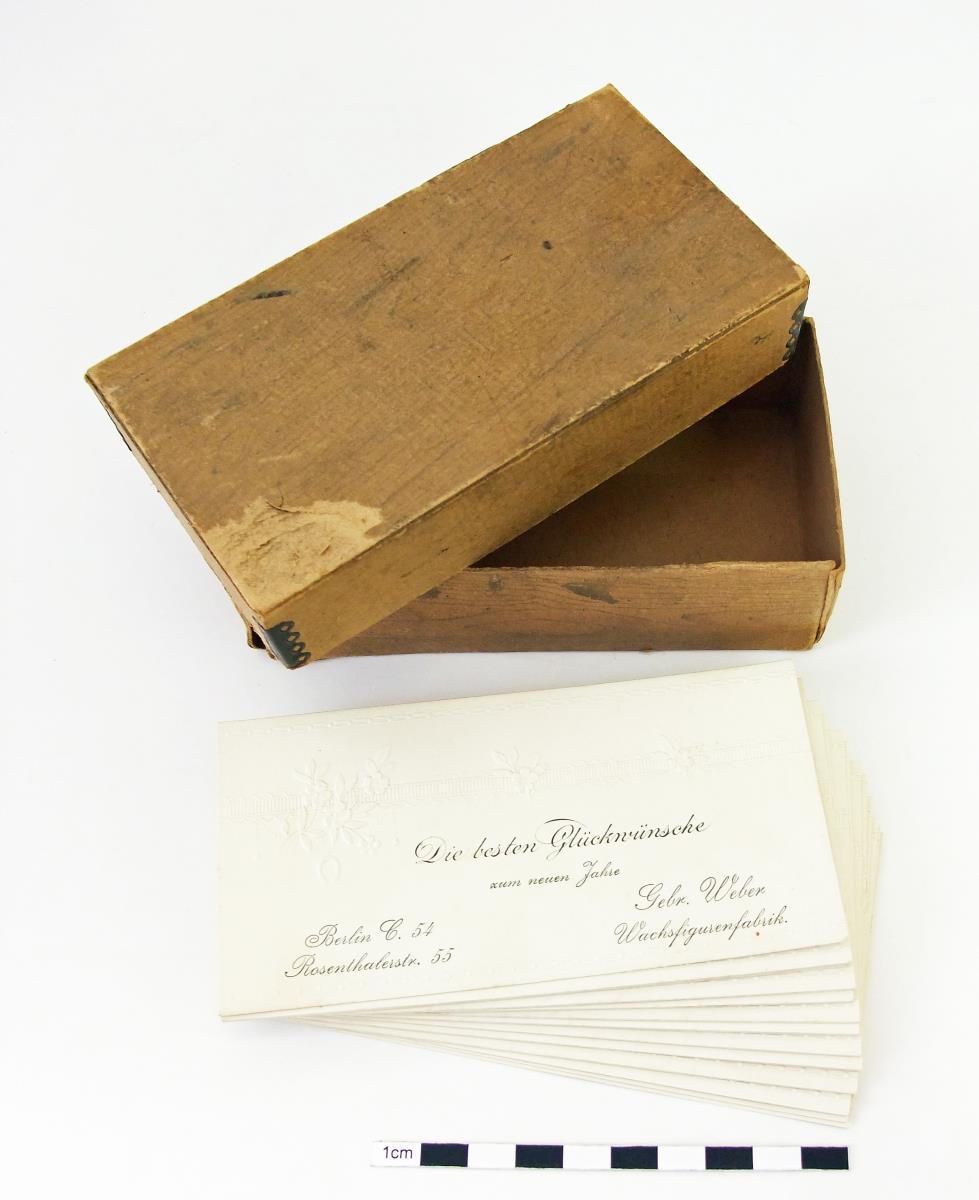 Die besten Glückwünsche
zum neuen Jahre
Gebr. Weber
Wachsfigurenfabrik.
Berlin C. 54
Rosenthalerstr. 55
1cm